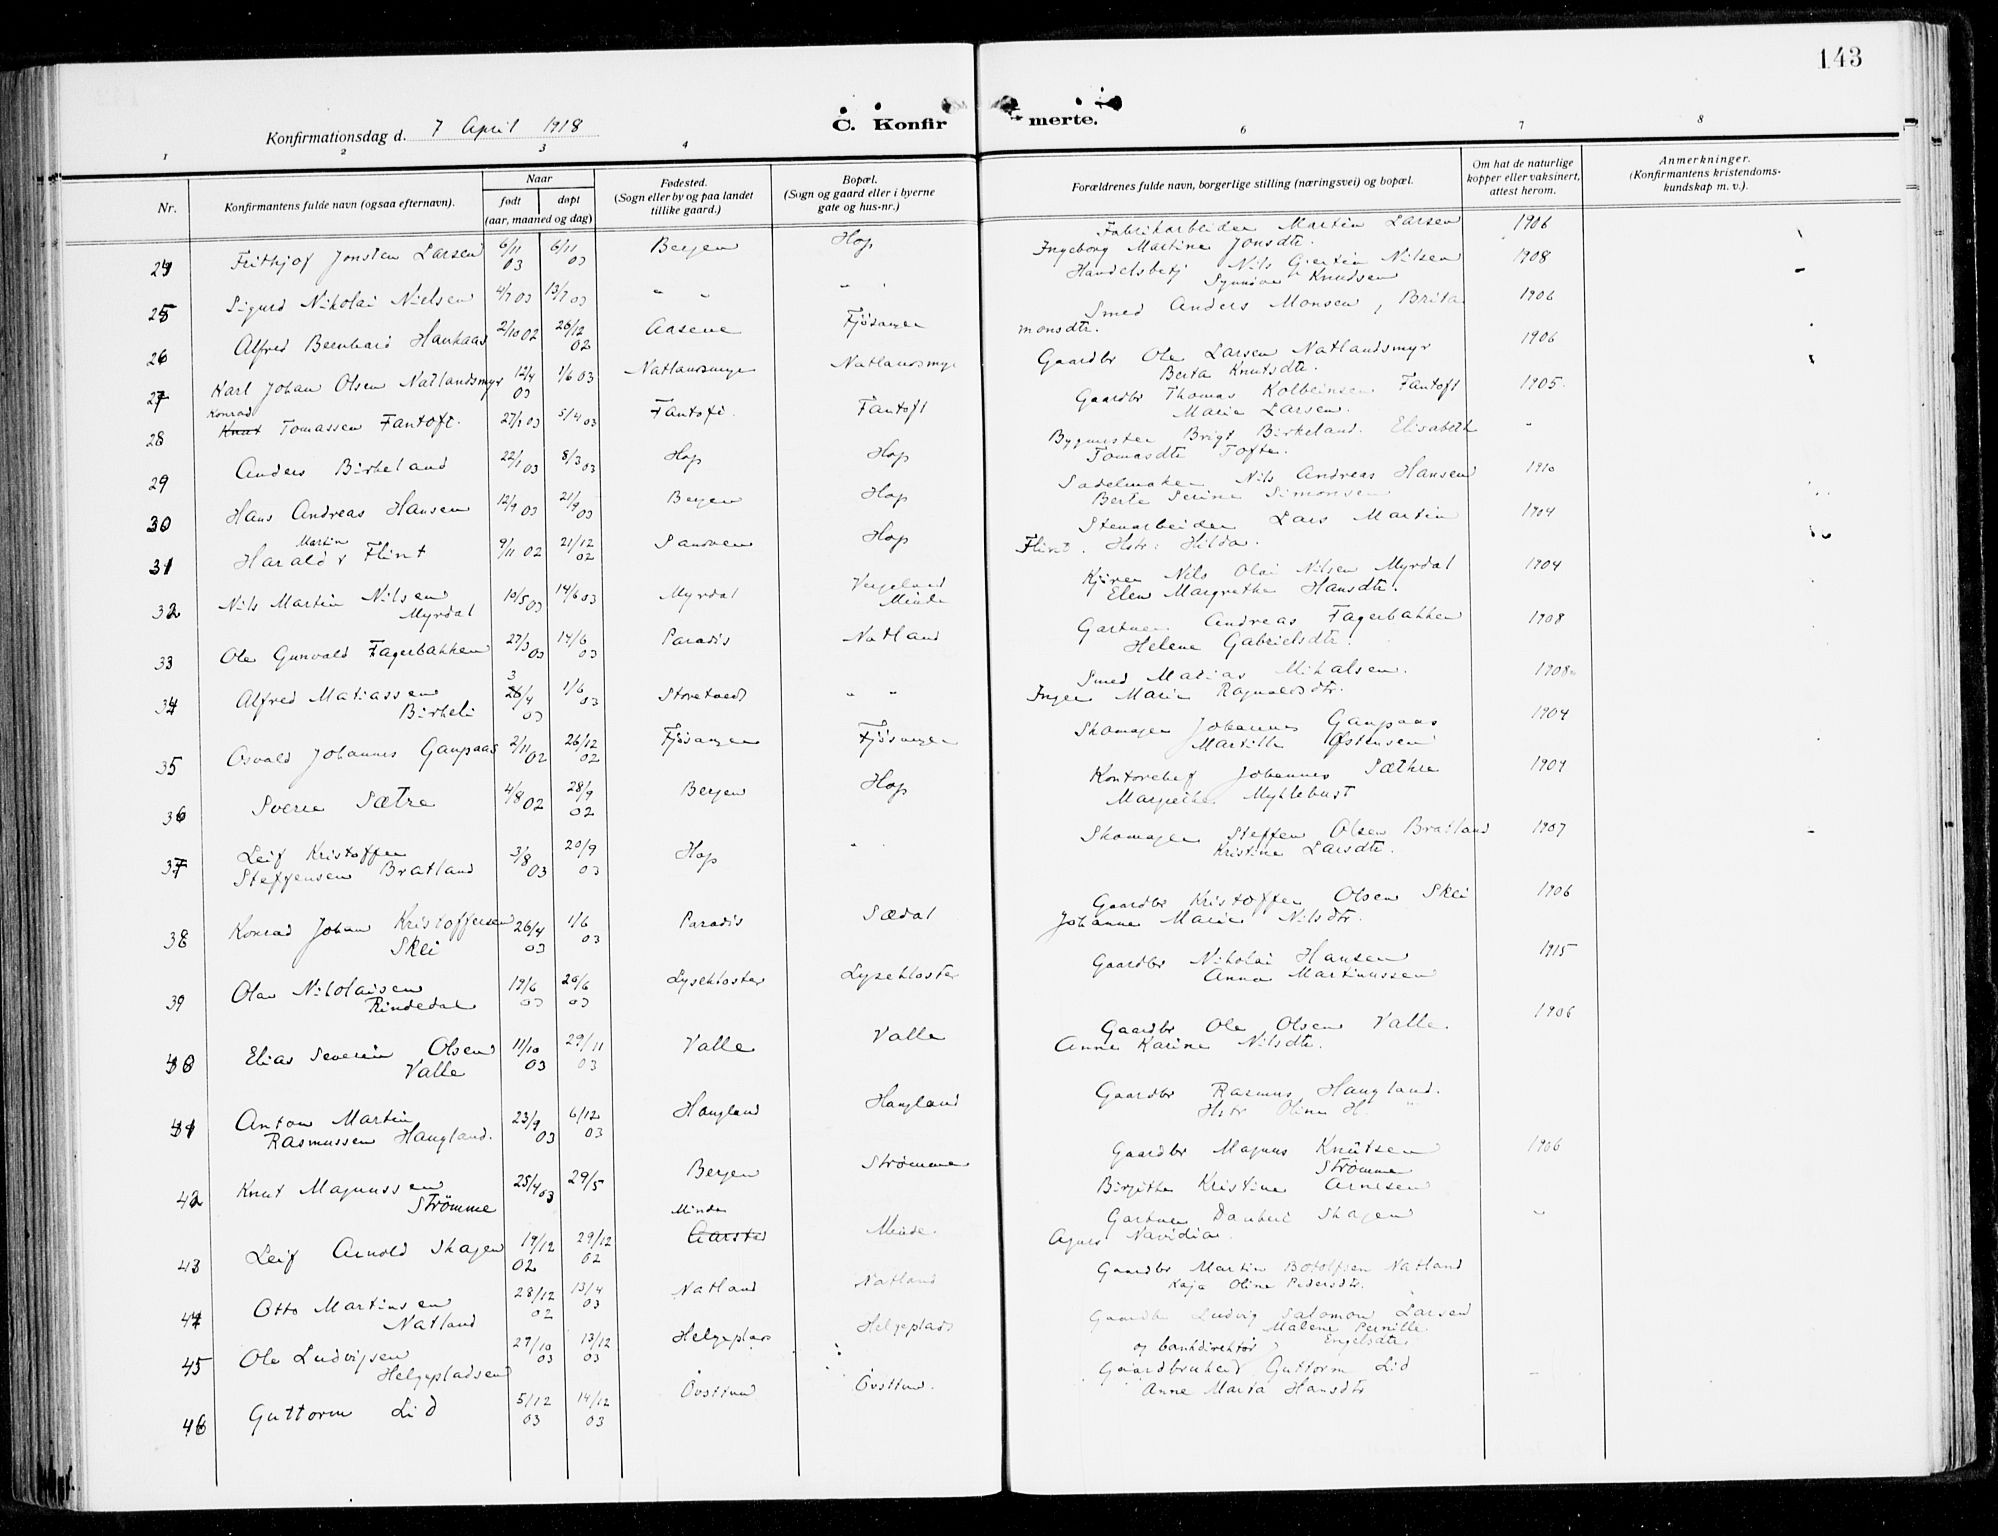 143
Konfirmationsdag d. 7 April 1918
C. Konfir merte.
1 2 3 4 6 7 8
Nr.
Konfirmantens fulde navn (ogsaa efternavn).
Naar
født
døpt
(aar, maaned og dag)
Fødested.
(Sogn eller by og paa landet
tillike gaard.)
Bopæl.
(Sogn og gaard eller i byerne
gate og hus-nr.)
Forældrenes fulde navn, borgerlige stilling (næringsvei) og bopæl.
Om hat de naturlige
kopper eller vaksinert,
attest herom.
Anmerkninger.
(Konfirmantens kristendoms-
kundskap m. v.).
24 Frithjof Jonsten Larsen 6/11 03 6/11 03 Bergen Hop Fabrikarbeider Martin Larsen 1906
Ingeborg Martine Jonsdtr.
25 Sigurd Nikolai Nielsen 4/7 03 13/7 03 " " " Handelsbetj Nils Gjertin Nilsen 1908
Synnöve Knudsen
26 Alfred Bernhard Haukaas 2/10 02 26/12 02 Aasene Fjösanger Smed Anders Monsen, Brita 1906
monsdtr.
27 Karl Johan Olsen Natlandsmyr 12/4 03 1/6 03 Natlandsmyr Natlandsmyr Gaardbr Ole Larsen Natlandsmyr 1906
Berta Knutsdtr.
Konrad
28 Knut Tomassen Fantoft. 27/1 03 5/4 03 Fantoft. Fantoft Gaardbr Thomas Kolbeinsen Fantoft 1905
Marie Larsen.
29 Anders Birkeland 22/1 03 8/3 03 Hop Hop Bygmester Brigt Birkeland. Elisabeth "
Tomasdtr Tofte.
30 Hans Andreas Hansen 12/9 03 21/9 03 Bergen Hop Sadelmaker Nils Andreas Hansen 1910
Berte Serine Simonsen
Martin
31 Harald v Flint 9/11 02 21/12 02 Sandven Hop Stenarbeider Lars Martin 1904
Flint. Hstr: Hilda.
32 Nils Martin Nilsen 10/5 03 14/6 03 Myrdal Vergeland Kjörer Nils Olai Nilsen Myrdal 1904
Myrdal Minde Elen Margrethe Hansdtr.
33 Ole Gunvald Fagerbakken 27/3 03 14/6 03 Paradis Natland Gartner Andreas Fagerbakken 1908
Helene Gabrielsdtr.
34 Alfred Matiassen 3 26/4 03 1/6 03 Storetvedt " " Smed Matias Mikalsen. 1908
Birkeli Inger Marie Ragnvaldsdtr.
35 Osvald Johannes Gaupaas 2/11 02 26/12 02 Fjösanger Fjösanger Skomager Johannes Gaupaas 1904
Martille Østensen
36 Sverre Sætre 4/8 02 28/9 02 Bergen Hop Kontorchef Johannes Sæthre 1904
Margrethe Myklebust
37 Leif Kristoffer 3/8 03 20/9 03 Hop " Skomager Steffen Olsen Bratland 1907
Steffensen Bratland Kristine Larsdtr.
38 Konrad Johan Kristoffersen 26/4 03 1/6 03 Paradis Sædal Gaardbr Kristoffer Olsen Skei 1906
Skei Johanne Marie Nilsdtr.
39 Olav Nikolaisen 19/6 03 26/6 03 Lysekloster Lysekloster Gaardbr Nikolai Hansen 1915
Rindedal Anna Martinussen
40 Elias Severin Olsen 11/10 03 29/11 03 Valle Valle Gaardbr Ole Olsen Valle. 1906
Valle Anne Karine Nilsdtr.
41 Anton Martin 23/9 03 6/12 03 Haugland Haugland Gaardbr Rasmus Haugland.
Rasmussen Haugland. Hstr Oline H "
42 Knut Magnussen 25/4 03 29/5 Bergen Strömme Gaardbr Magnus Knutsen 1906
Strömme Strömme
Birgithe Kristine Arnesen
43 Leif Arnold Skagen 19/12 02 29/12 02 Minde Aarstad Minde. Gartner Daubert Skagen "
Agnes Navidia.
44 Otto Martinsen 28/12 02 13/4 03 Natland Natland Gaardbr Martin Botolfsen Natland
Natland Kaja Oline Pedersdtr.
45 Ole Ludvigsen 27/10 03 13/12 03 Helgeplads Helgeplads Gaardbr Ludvig Salomon Larsen
Helgepladsen Malene Pernille Engelsdtr
og bankdirektör
46 Guttorm Lid 5/12 03 14/12 03 Övsttun Övsttun. Gaardbruker Guttorm Lid
Anne Marta Hansdtr